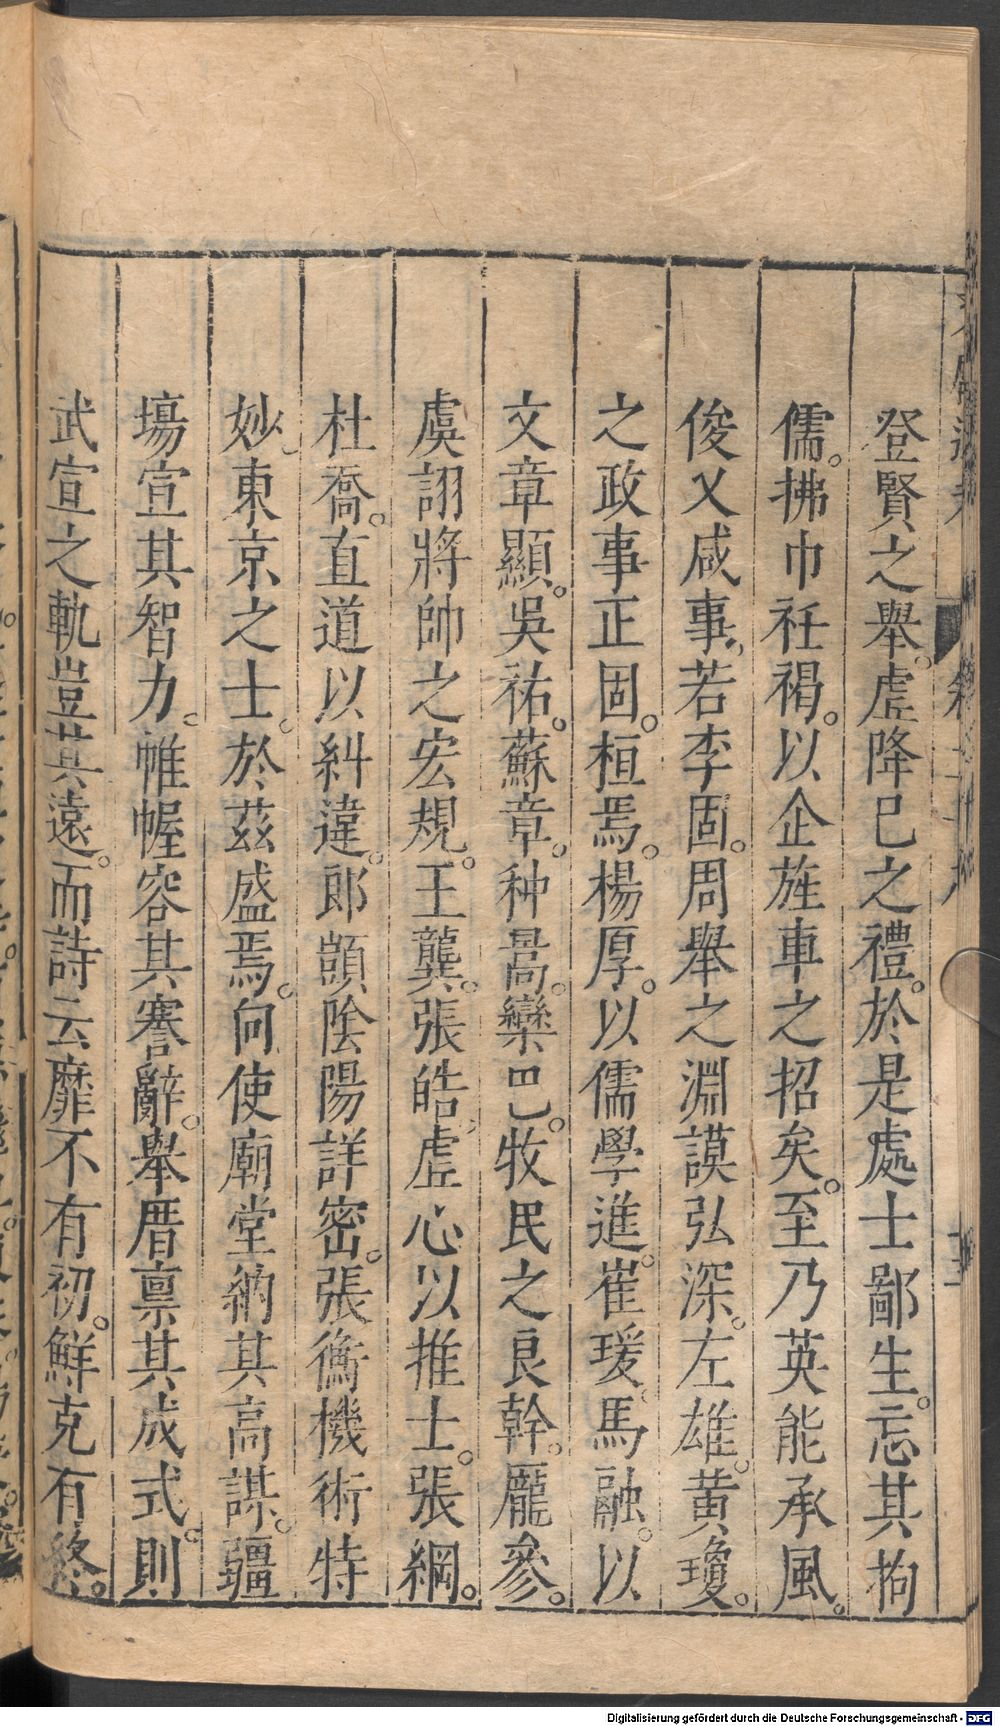 登賢之舉。虛降已之禮。於是處士鄙生。忘其拘
儒。拂巾衽褐。以企旌車之招矣。至乃英能承風。
俊乂咸事、若李固。周舉之淵謨弘深。左雄。黃瓊。
之政事正固。桓焉。楊厚。以儒學進。崔瑗、馬融。以
文章顯。吳祐。蘇章。种暠。欒巴。牧民之良幹。龐參。
虞詡將帥之宏規。王龔。張皓、虛心以推士。張綱。
杜喬。直道以糾違。郎顗陰陽詳密。張衡機術特
妙、東京之士。於茲盛焉。向使廟堂納其高謀。疆
場宣其智力。帷幄容其謇辭。舉厝禀其成式。則
武宣之軌豈其遠。而詩云靡不有初。鮮克有終。
Digitalisierung gefördert durch die Deutsche Forschungsgemeinschaft - DFG